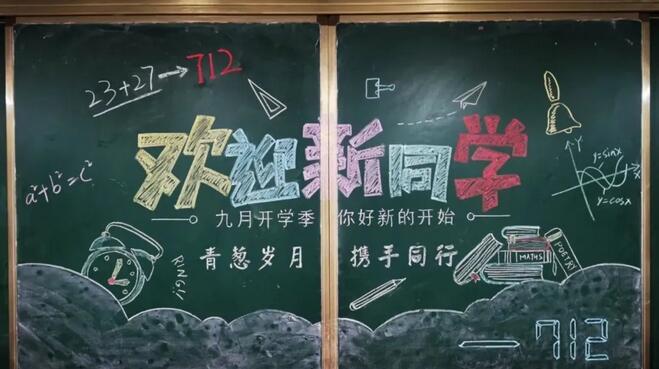 23+27→712
欢迎新同学
a²+b²=c²
y=sinx
Y
X
y=cosx
九月开学季 你好新的开始
青葱岁月 携手同行
RING!
MATHS
POETRY
712